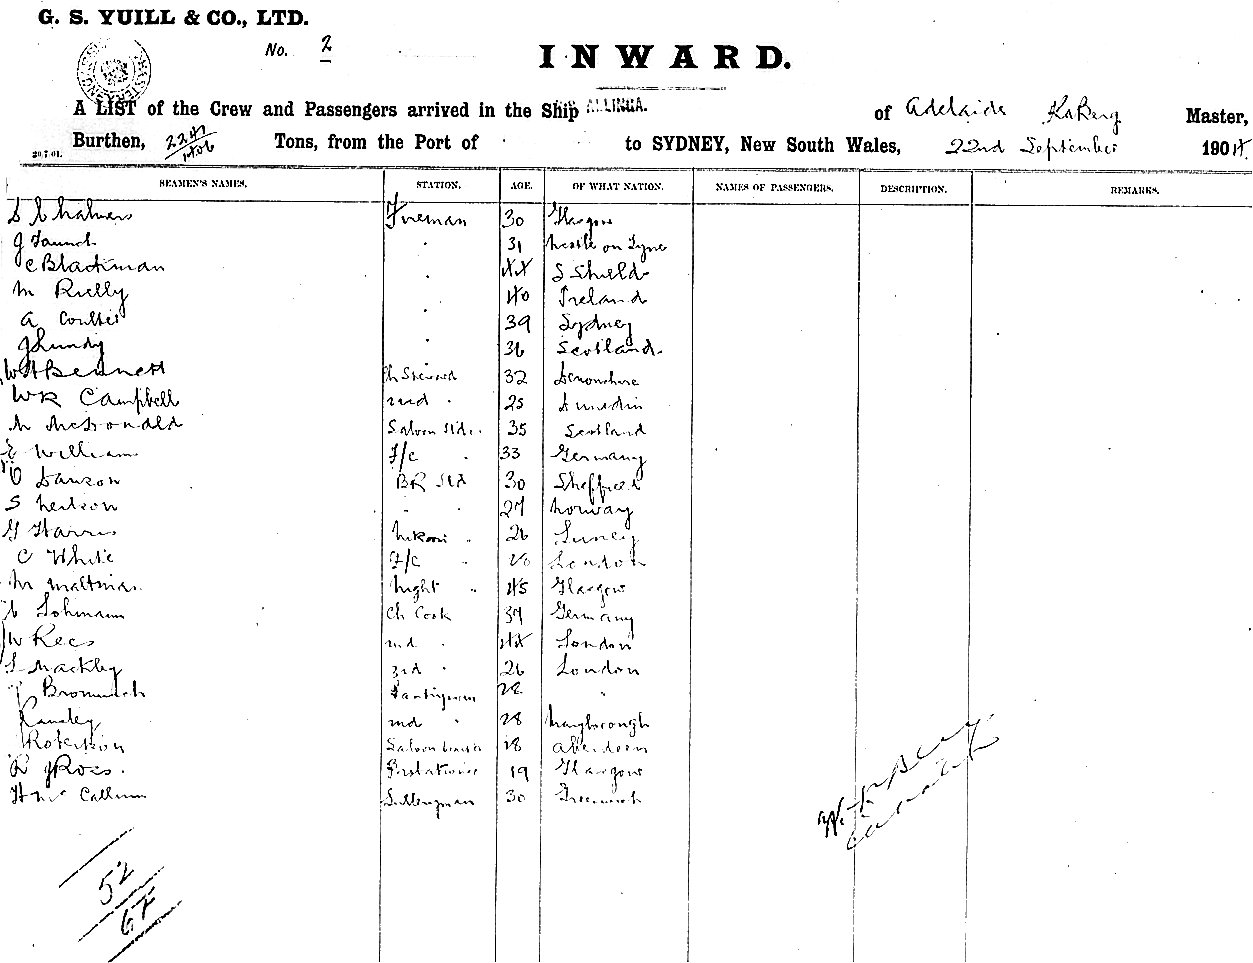 G. S. YUILL & CO., LTD.
No. 2
INWARD.
A LIST of the Crew and Passengers arrived in the Ship ALLINGA. of Adelaide Master,
Burthen, 2247 Tons, from the Port of to SYDNEY, New South Wales, 22nd September 190
SEAMEN'S NAMES. STATION. AGE. OF WHAT NATION. NAMES OF PASSENGERS. DESCRIPTION. REMARKS.
S Chalmers Fireman 30 Glasgow
J 31 on Tyne
C Blackman 44 S Shields
M Rielly 40 Ireland
A Coulter 39 Sydney
J Lundy 36 Scotland
W H Bennett Ch Steward 32 Devonshire
W R Campbell 2nd 25 Dunedin
M McDonald Saloon Std. 35 Scotland
E William F/c 33 Germany
Dawson BR Std 30 Sheffield
S Neilson 27 Norway
G Harris 26 Surrey
C White F/c 20 London
M Night 45 Glasgow
Lohmann Ch Cook 37 Germany
W Rees 2nd 44 London
S Mackley 3rd 26 London
Pantryman 22
2nd 28
Robertson Saloon 18 Aberdeen
R J Ross. 19 Glasgow
H McCallum 30 Greenock
52
67